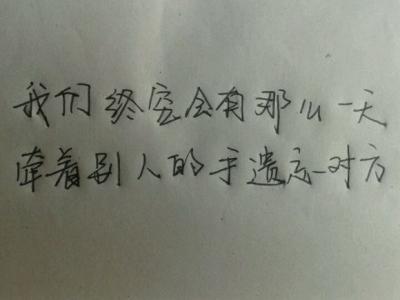 我们终究会有那么一天
牵着别人的手遗忘对方